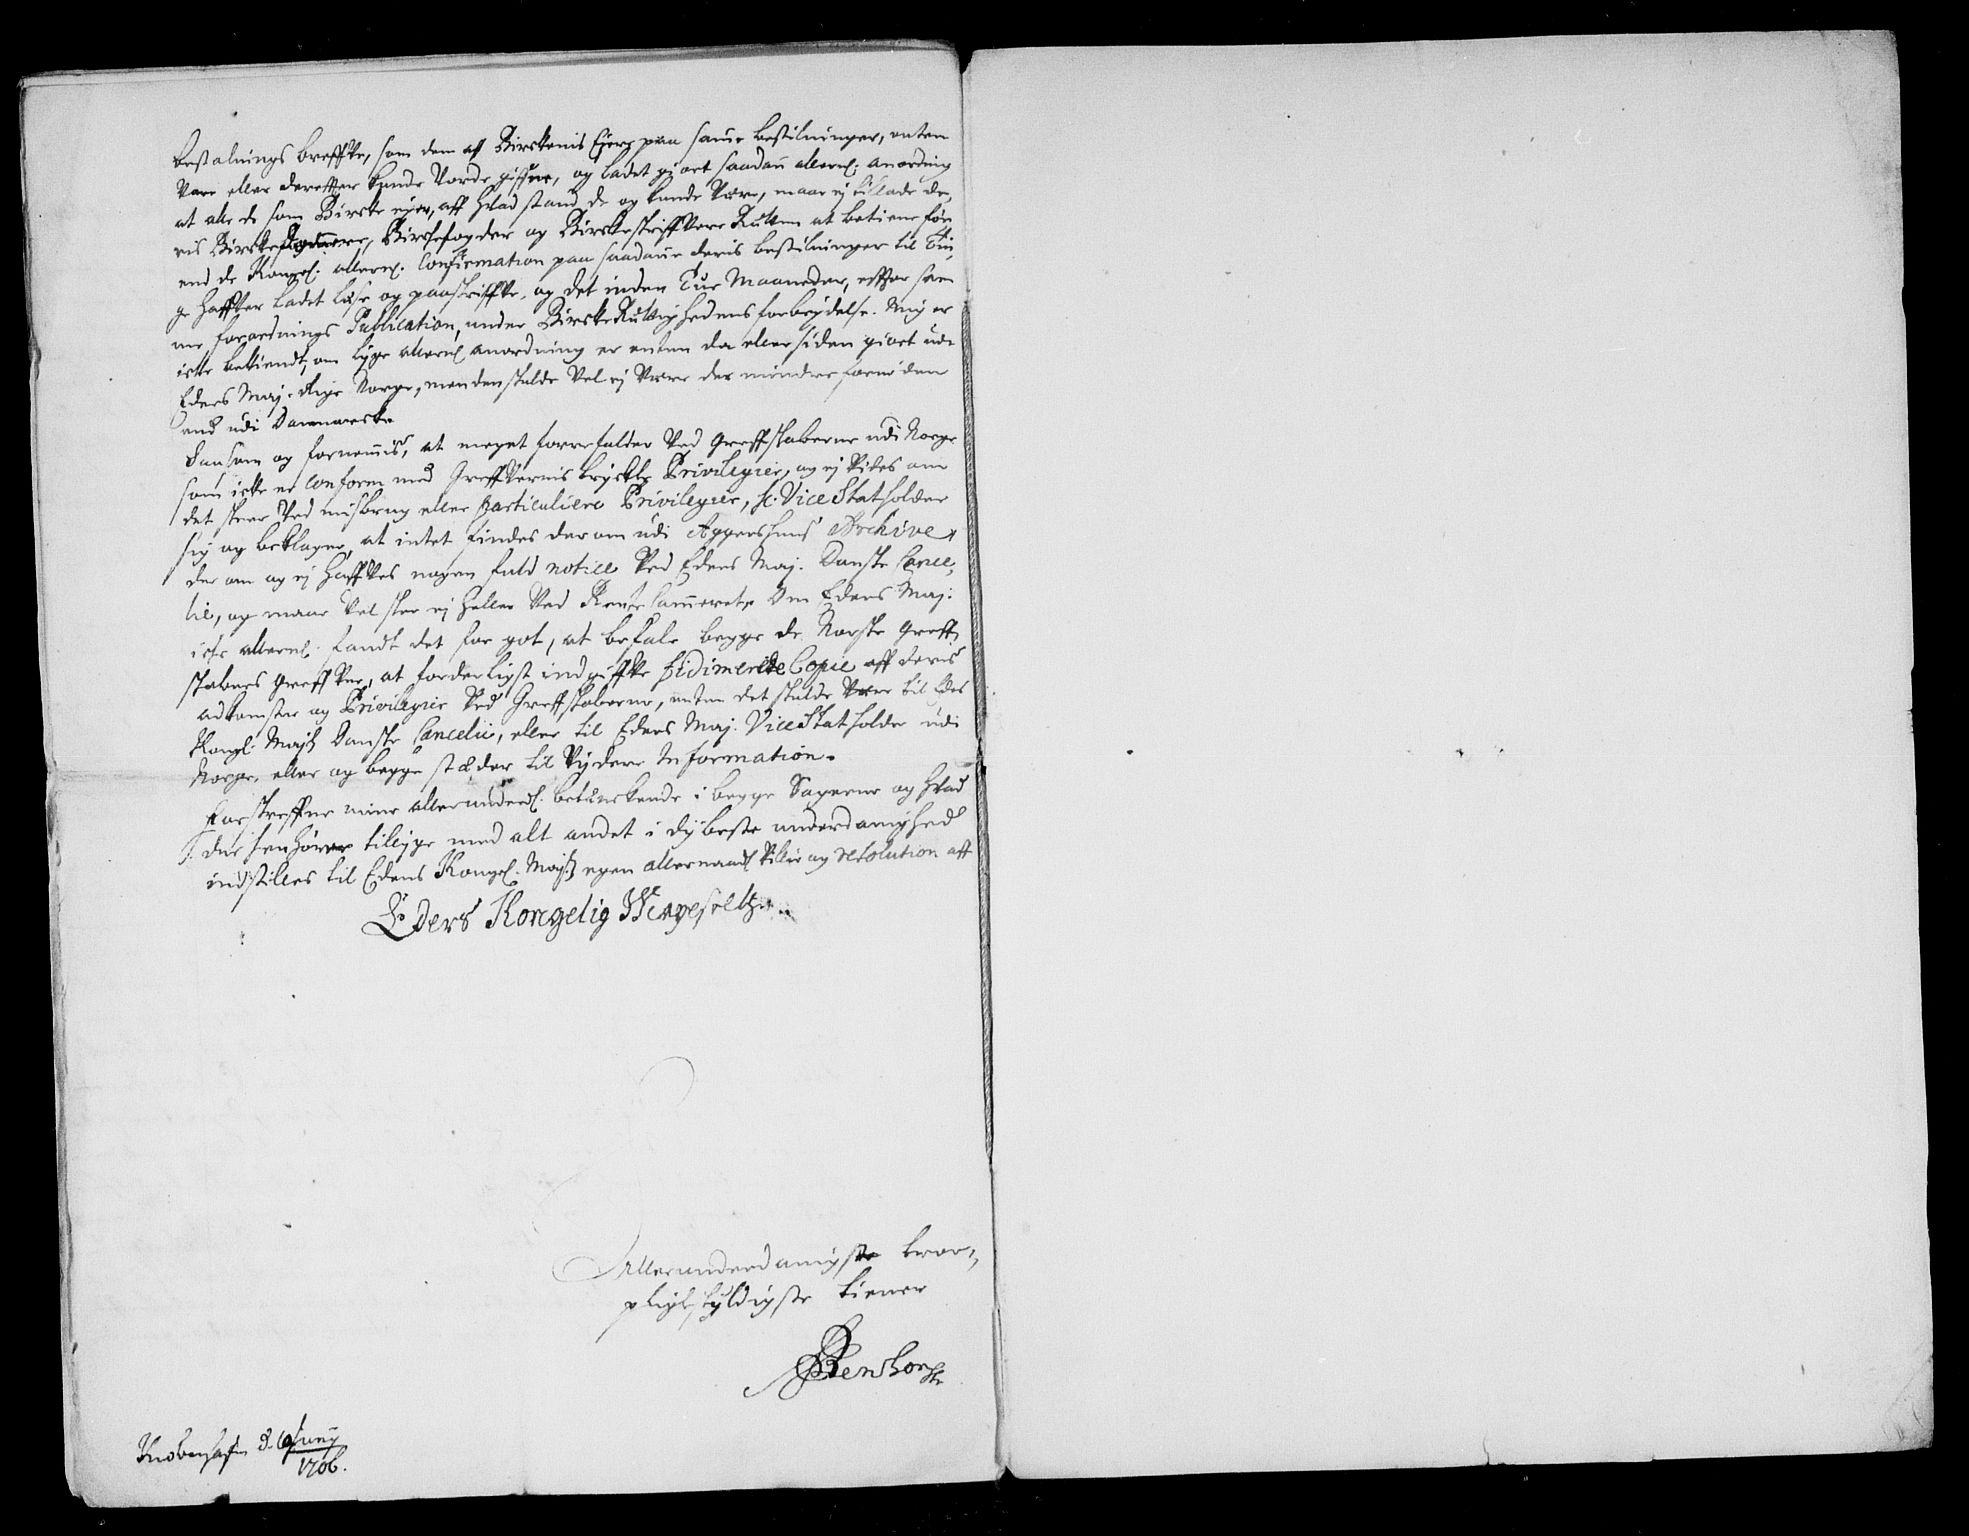 bestalnings breffve, som dem aff Birckenis Ejere paa samme bestilninger, enten
Vare eller derefter kunde Vorde gifven, og ladet giort saadan allern: anordning
at alle de som Bircke ejer, aff hvad stand de og kunde være, maa ej tillade de,
ris Bircke Birckefogder og Birckeskriffvere Retten at betiene før
end de Kongel: allern: Confirmation paa saadanne deris bestilninger til Tin,
ge haffver ladet læse og paaskriffve, og det inden Tue Maaneder, efter sam
me forordnings Publication, under Bircke Rettighedens forbrydelse. Mig er
icke bekiendt, om lige allern: anordning er enten da eller siden giort udi
Eders Maj: Rige Norge, men den skulde Vel ej Være des mindre fornøden
end udi Danmarck
Saasom og fornemmis, at meget forrefalder Ved Greffskaberne udi Norge
som icke er conform med Greffvernis trykte Privilegier, og ej vides om
det skeer Ved misbrug eller particuliere Privilegier, hr. Vice Statholder
sig og beklager, at intet findes der om udi Aggershuus Archive,
der om og ej haffves nogen fuld notice Ved Eders Maj: Danske Cancel,
lie, og maa vel skee ej heller Ved Rente Cammeret, Om Eders Maj:
icke allern: fandt det for got, at befale begge de Norske Greff,
skabers Greffver, at forderligst indgiffve vidimerede Copie aff deris
adkomster og Privilegier Ved Greffskaberne, enten det skulde være til Eders
Kongl: Majts Danske Cancelii, eller til Eders Maj: Vice Statholder udi
Norge, eller og begge stæder til Vijdere Information.
Forskreffne mine allerunderd: betenckende i begge Sagerne og hvad
der henhører tillige med alt andet i dybeste underdanighed
indstilles til Eders Kongel: Majts egen allernaad: Villie og resolution aff
Eders Kongelig Mayestetz
Allerunderdanigste troe,
pligtskyldigste tiener
Kiøbenhafn d. Junij
1706.